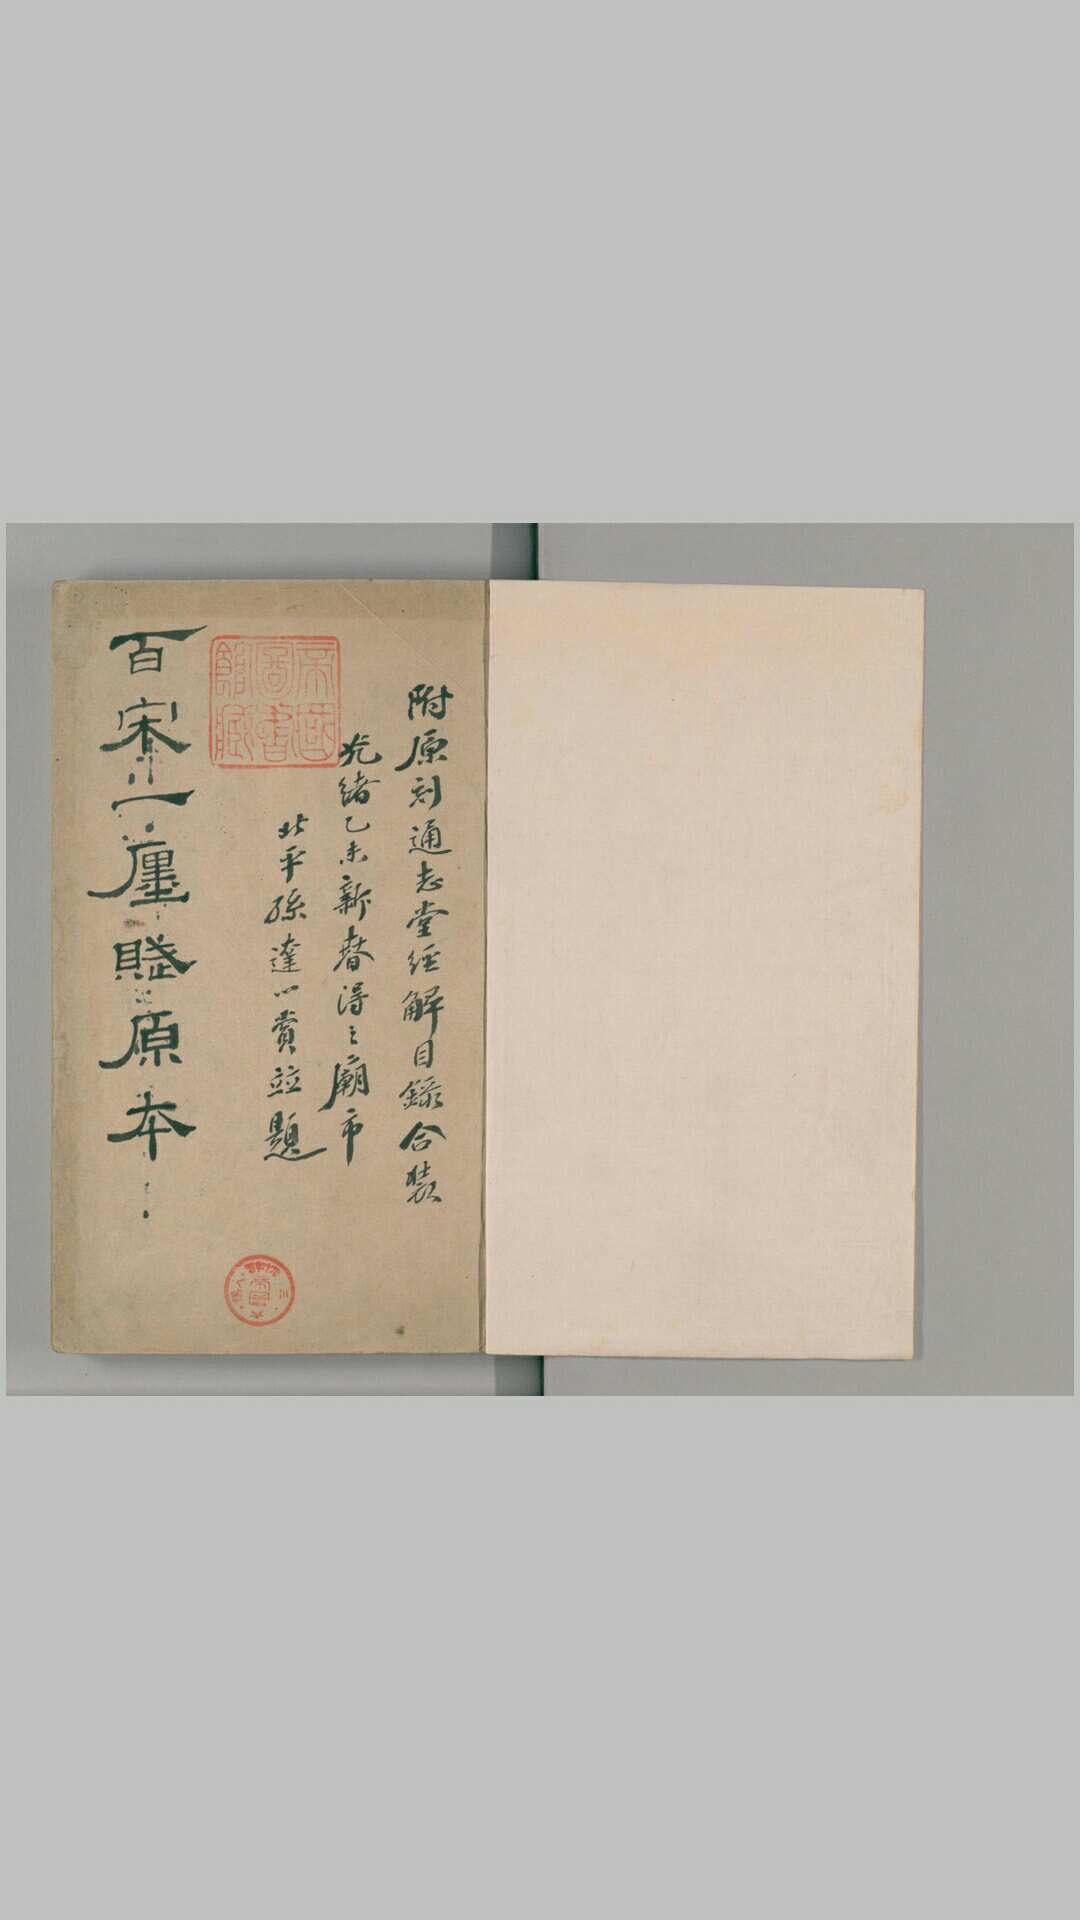 附原刻通志堂經解目錄合裝
光緒乙未新春得之廟市
北平孫達心賞竝題
百宋一廛賦原本
帝國
圖書
館藏